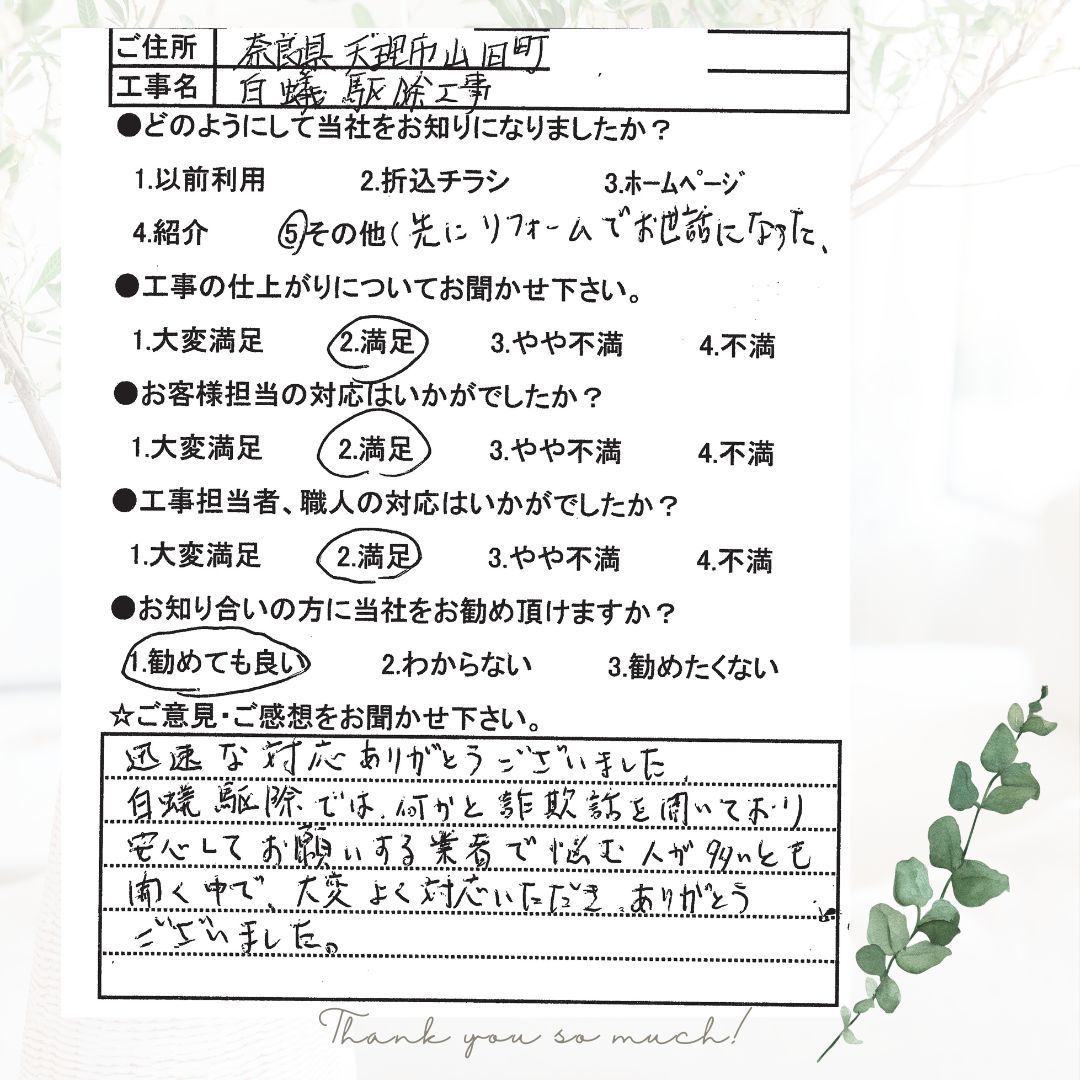 ご住所 奈良県天理市山田町
工事名 白蟻駆除工事
●どのようにして当社をお知りになりましたか？
1.以前利用 2.折込チラシ 3.ホームページ
4.紹介 ⑤その他(先にリフォームでお世話になった、
●工事の仕上がりについてお聞かせ下さい。
1.大変満足 2.満足 3.やや不満 4.不満
●お客様担当の対応はいかがでしたか？
1.大変満足 2.満足 3.やや不満 4.不満
●工事担当者、職人の対応はいかがでしたか？
1.大変満足 2.満足 3.やや不満 4.不満
●お知り合いの方に当社をお勧め頂けますか？
1.勧めても良い 2.わからない 3.勧めたくない
☆ご意見・ご感想をお聞かせ下さい。
迅速な対応ありがとうございました。
白蟻駆除では、何かと詐欺話を聞いており
安心してお願いする業者で悩む人が多いとも
聞く中で、大変よく対応いただき、ありがとう
ございました。
Thank you so much!